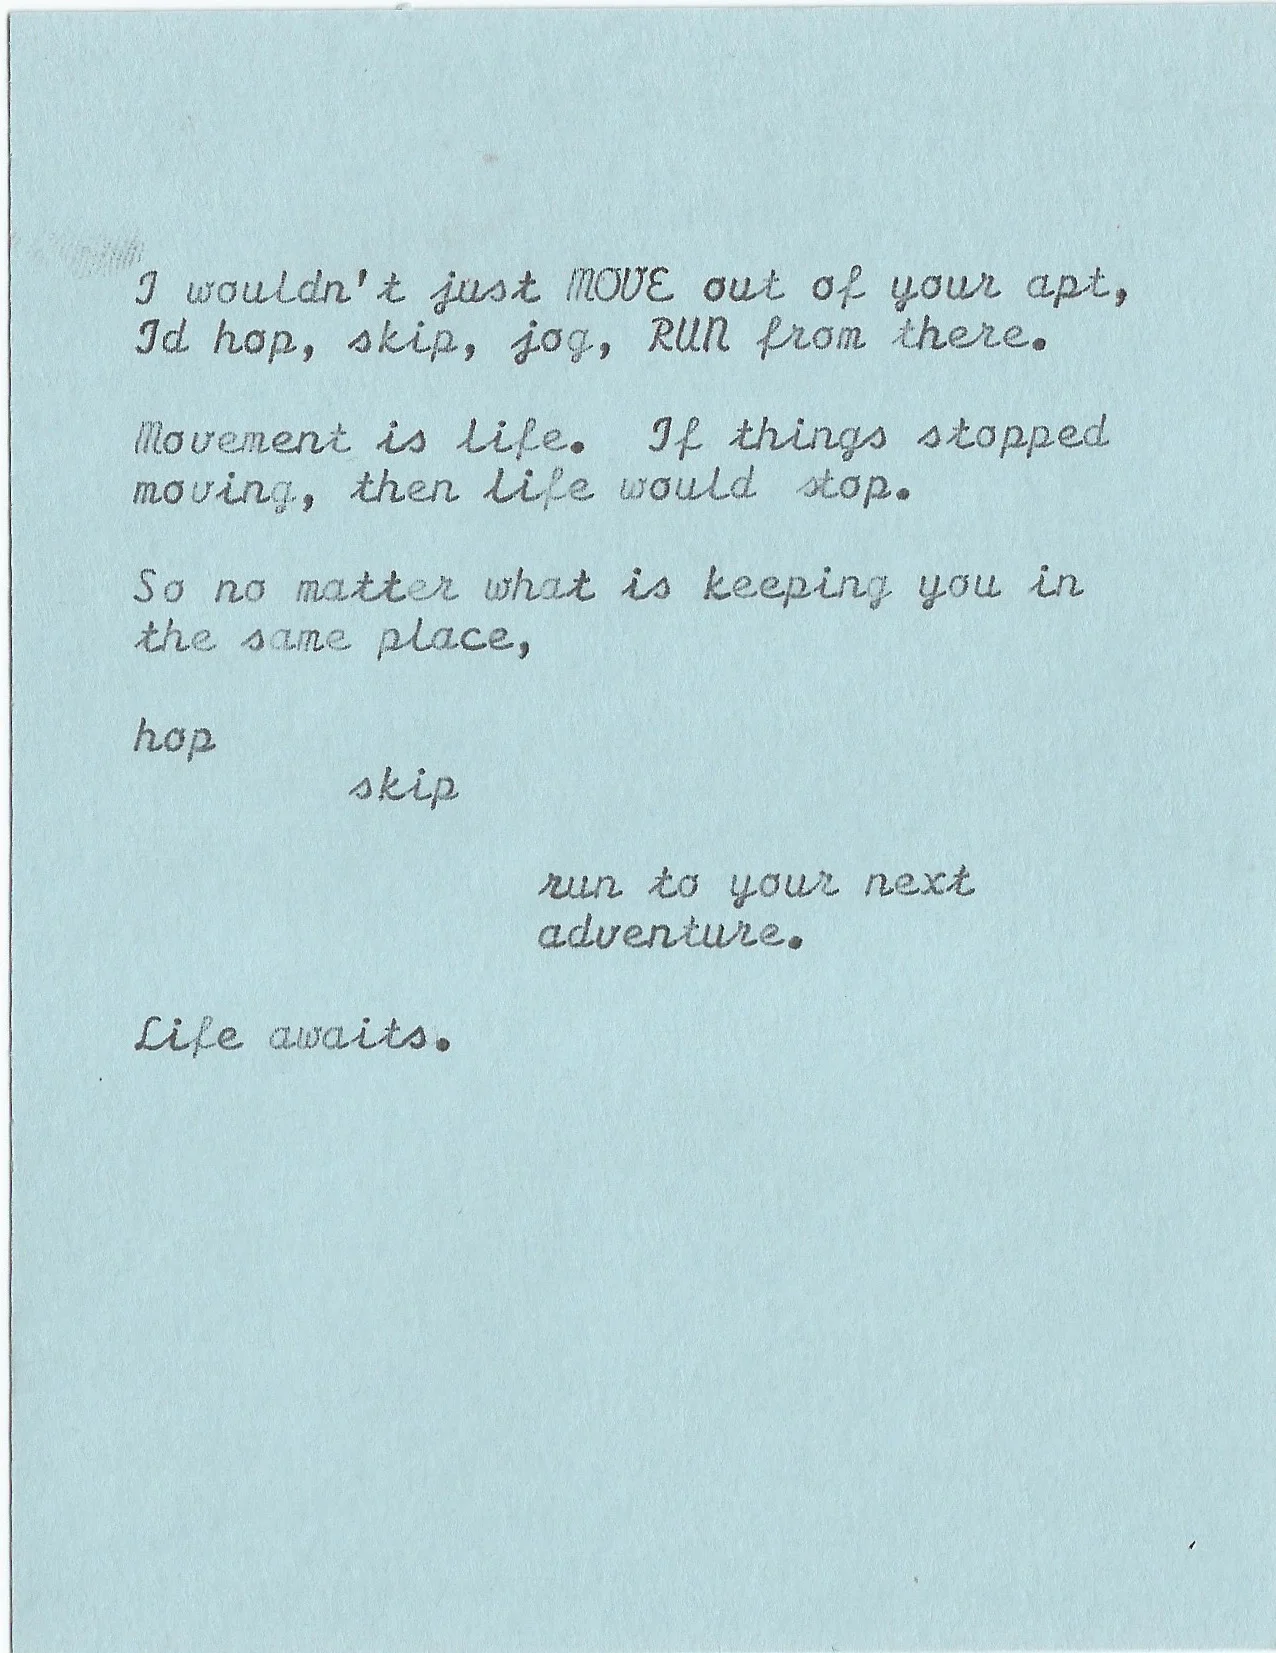 I wouldn't just MOVE out of your apt,
Id hop, skip, jog, RUN from there.
Movement is life.  If things stopped
moving, then life would stop.
So no matter what is keeping you in
the same place,
hop
skip
run to your next
adventure.
Life awaits.